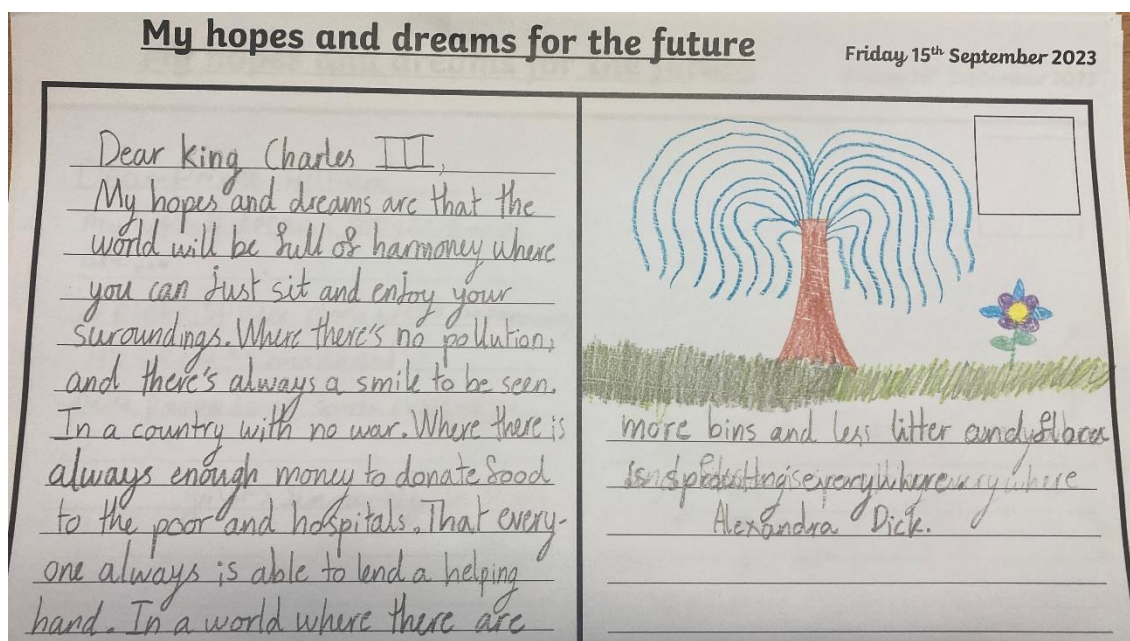 My hopes and dreams for the future
Friday 15th September 2023
Dear King Charles III,
My hopes and dreams are that the
world will be full of harmoney where
you can just sit and enjoy your
suroundings. Where there's no pollution,
and there's always a smile to be seen.
In a country with no war. Where there is
always enough money to donate food
to the poor and hospitals. That every-
one always is able to lend a helping
hand. In a world where there are
more bins and less litter and
is everywhere
Alexandra Dick.